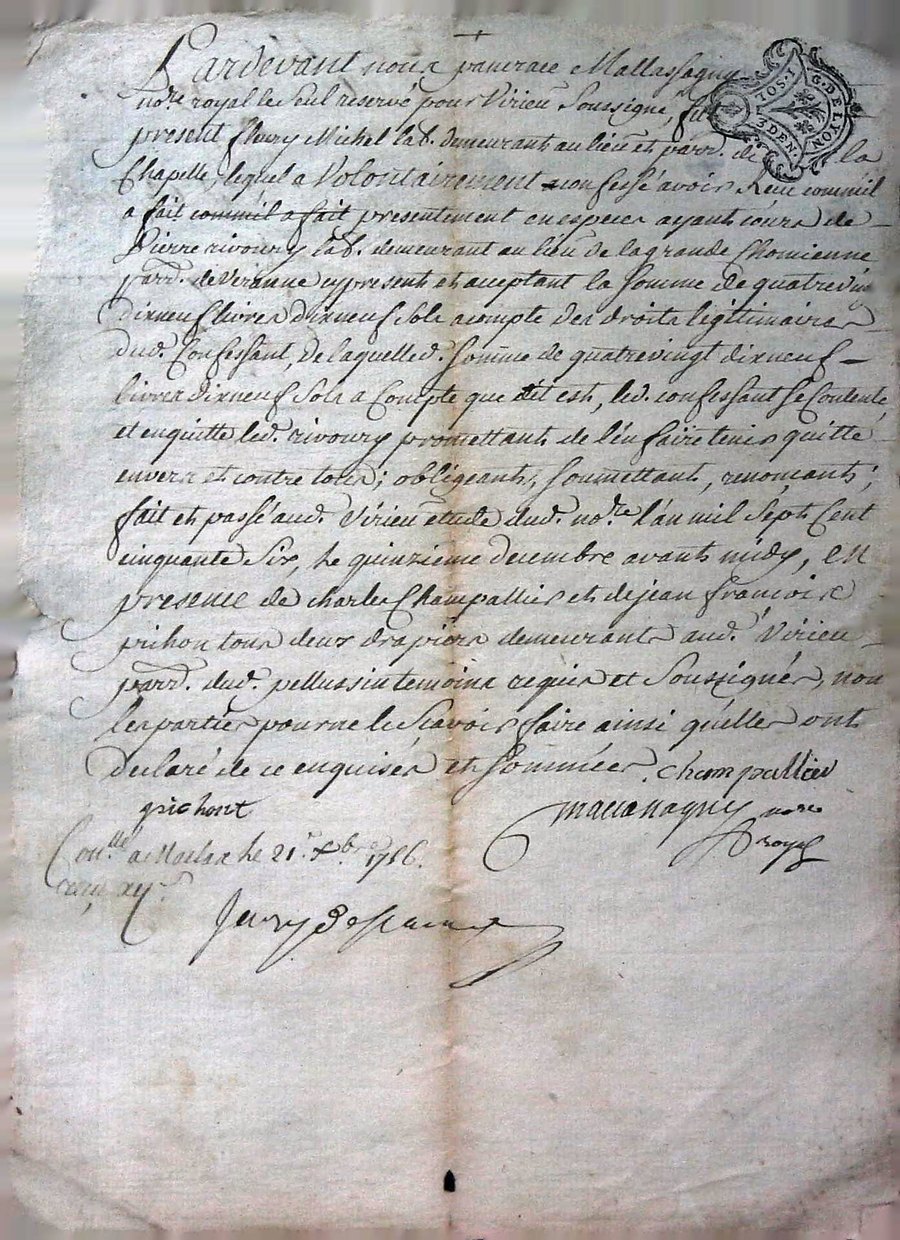 +
Pardevant nous pancrace Mallassagny
nore royal le seul reservé pour Virieu Soussigné, fut
present fleury Michel lab. demeurant au lieu et parr. de la
G. DE LYON
1 SOL
3 DEN.
Chapelle, lequel a Volontairement confessé avoir Reçu comm'il
a fait comm'il a fait presentement en especes ayants cours de
Pierre rivoury lab. demeurant au lieu de la grande Chomienne
parr. de Veranne cy present et acceptant la somme de quatrevin
dixneuf livres dixneuf sols acompte des droits légitimaires
dud. Confessant, de laquelle d. somme de quatrevingt dixneuf
livres dixneuf sols a Compte que dit est, led. confessant se Contente,
et en quitte led. rivoury promettants de l'en faire tenir quitte
envers et contre tous; obligeants, soumettant, renonçants;
fait et passé aud. Virieu étude dud. nore l'an mil Sept Cent
cinquante Six, le quinzieme decembre avant midy, en
presence de charles Champallier et de jean francois
prihon tous deux drapiers demeurants aud. Virieu
parr. dud. pellussin temoins requis et Soussignés, non
les parties pour ne le Scavoir faire ainsi qu'elles ont
declaré de ce enquises et sommées. champallier
prihont
Mallassagny nore
royal
Conllé a Maclas le 21e Xbre 1756.
reçu